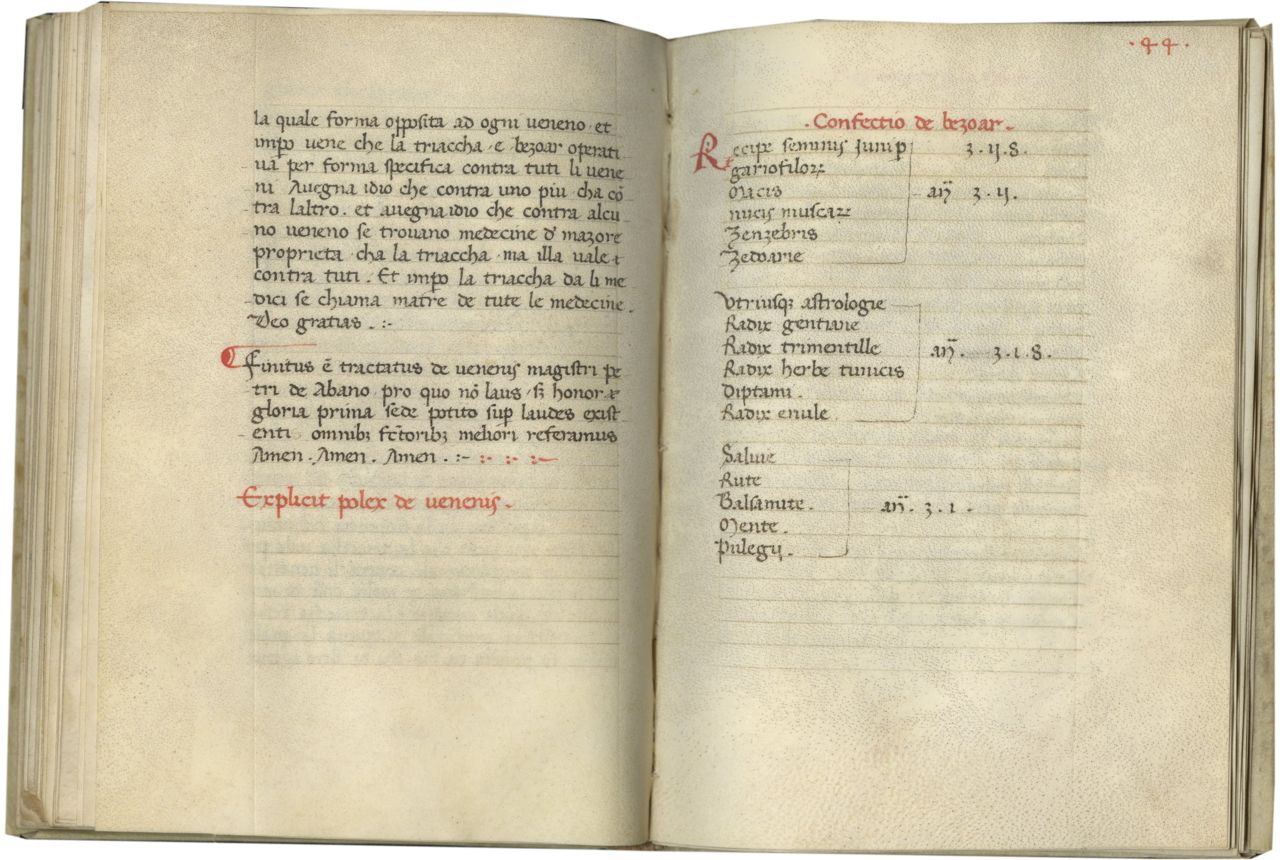 la quale forma opposita ad ogni veneno · et
impo vene che la triaccha · e bezoar operati
va per forma specifica contra tuti li vene
ni Avegna idio che contra uno piu cha cō
tra laltro . et avegna idio che contra alcu
no veneno se trovano medecine d' mazore
proprieta · cha la triaccha · ma illa vale ⁊
contra tuti . Et impo la triaccha da li me
dici se chiama matre de tute le medecine .
Deo gratias . :-
Finitus ē tractatus de venenis magistri pe
tri de Abano · pro quo nō laus · sʒ honor ⁊
gloria prima sede potito sup laudes exist
enti omnibꝫ meliori referamus
Amen . Amen . Amen . :-
Explicit polex de venenis .
· 44 ·
· Confectio de bezoar .
Recipe seminis junip ʒ . ij . 8 .
gariofiloꝝ
Macis añ ʒ . ij .
nucis muscaꝝ
Zenzebris
Zedoarie
Utriusqꝫ astrologie
Radix gentiane
Radix trimentille añ . ʒ . 1 . 8 .
Radix herbe tunicis
Diptami .
Radix enule .
Salvie
Rute
Balsamite . añ . ʒ . 1 .
Mente .
Pulegij .